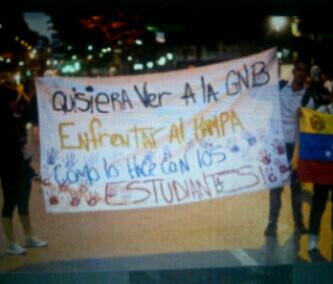 QUISIERA Ver A lA GNB
EnfrentAr Al HAMPA
Como lo Hace con los
ESTUDIANTES!